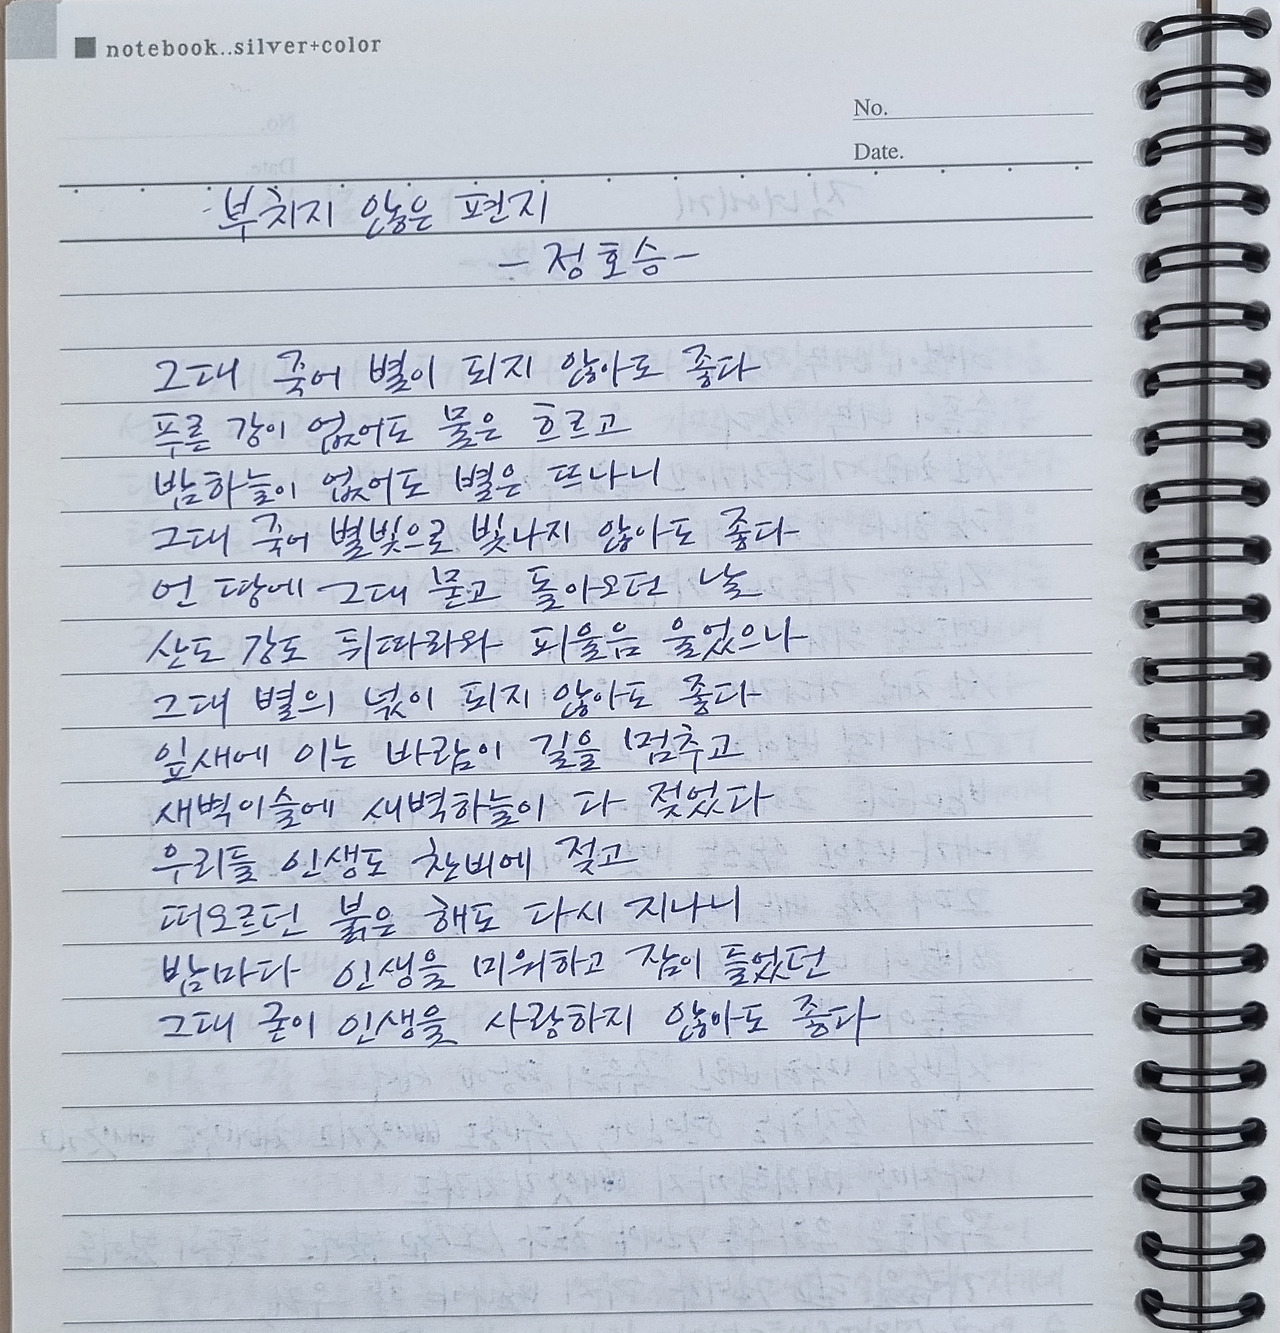 notebook..silver+color
No.
Date.
부치지 않은 편지
- 정호승 -
그대 죽어 별이 되지 않아도 좋다
푸른 강이 없어도 물은 흐르고
밤하늘이 없어도 별은 뜨나니
그대 죽어 별빛으로 빛나지 않아도 좋다
언 땅에 그대 묻고 돌아오던 날
산도 강도 뒤따라와 피울음 울었으나
그대 별의 넋이 되지 않아도 좋다
잎새에 이는 바람이 길을 멈추고
새벽이슬에 새벽하늘이 다 젖었다
우리들 인생도 찬비에 젖고
떠오르던 붉은 해도 다시 지나니
밤마다 인생을 미워하고 잠이 들었던
그대 굳이 인생을 사랑하지 않아도 좋다